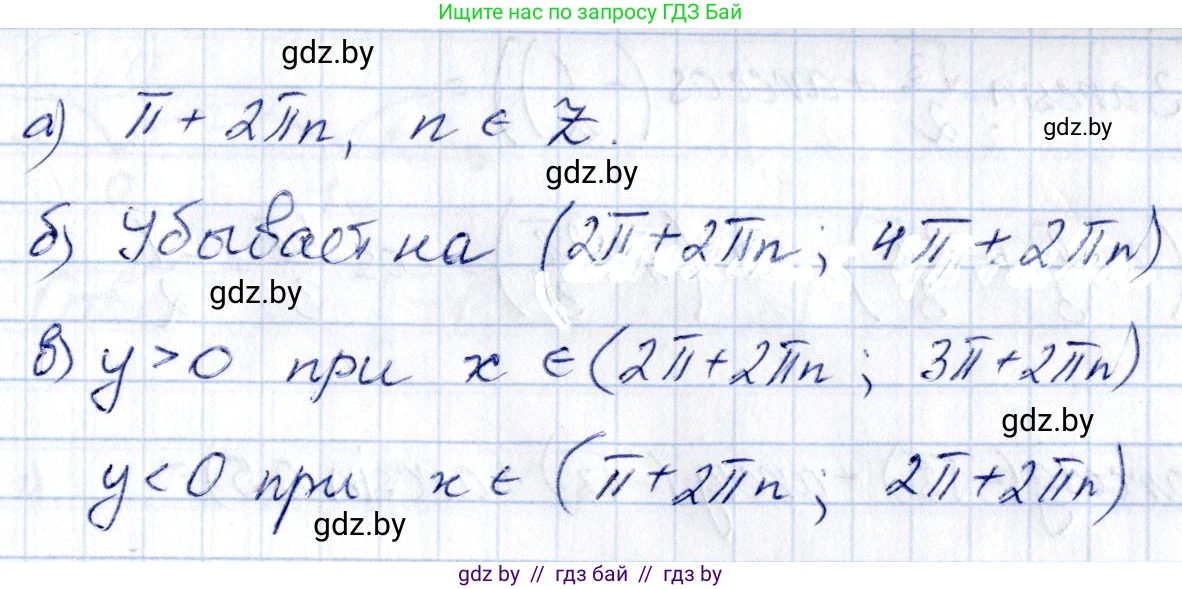 Ищите нас по запросу ГДЗ Бай
gdz.by
а) π + 2πn, n ∈ Z.
gdz.by
gdz.by
б) Убывает на (2π + 2πn; 4π + 2πn)
gdz.by
в) y > 0 при x ∈ (2π + 2πn; 3π + 2πn)
gdz.by
y < 0 при x ∈ (π + 2πn; 2π + 2πn)
gdz.by
gdz by // гдз бай // гдз by